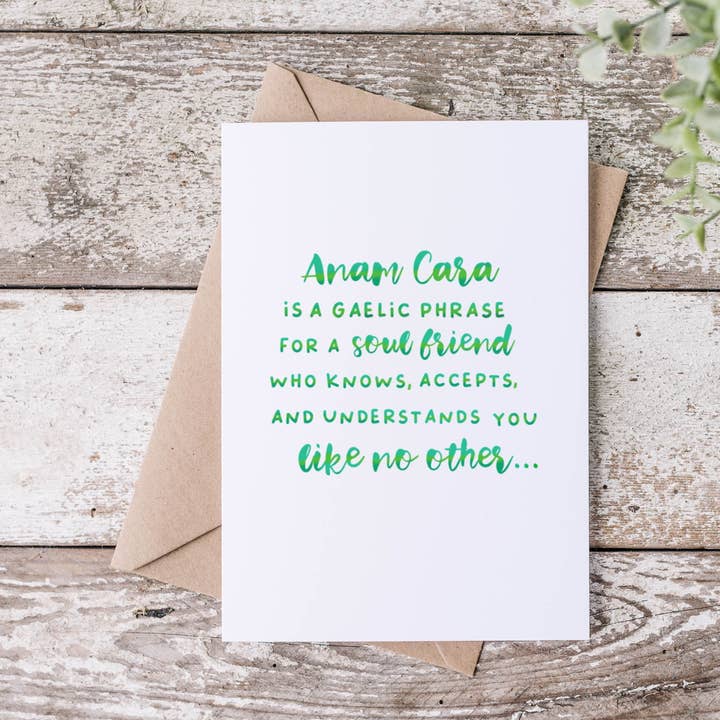 Anam Cara
is A GAELIC PHRASE
FOR A soul friend
WHO KNOWS, ACCEPTS,
AND UNDERSTANDS YOU
like no other...